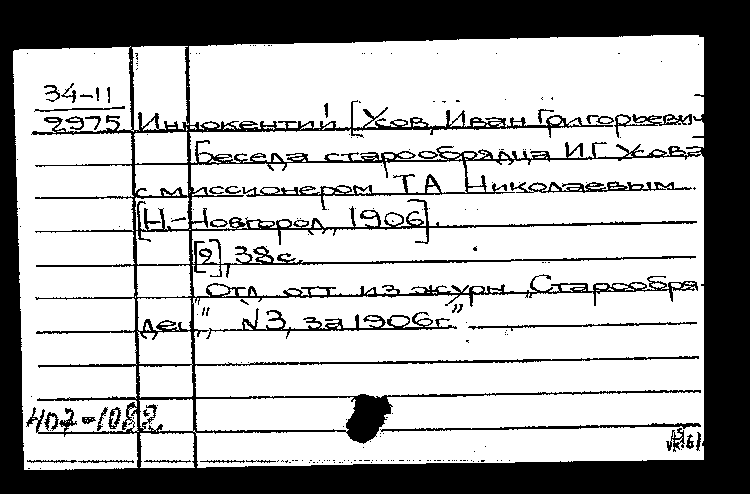 34-II
2975 Иннокентий [Усов, Иван Григорьевич
Беседа старообрядца И.Г. Усова
с миссионером Т.А. Николаевым.
[Н.-Новгород, 1906].
[2], 38 с.
„Отд. отт. из журн. „Старообря-
дец", №3, за 1906 г."
407-1082